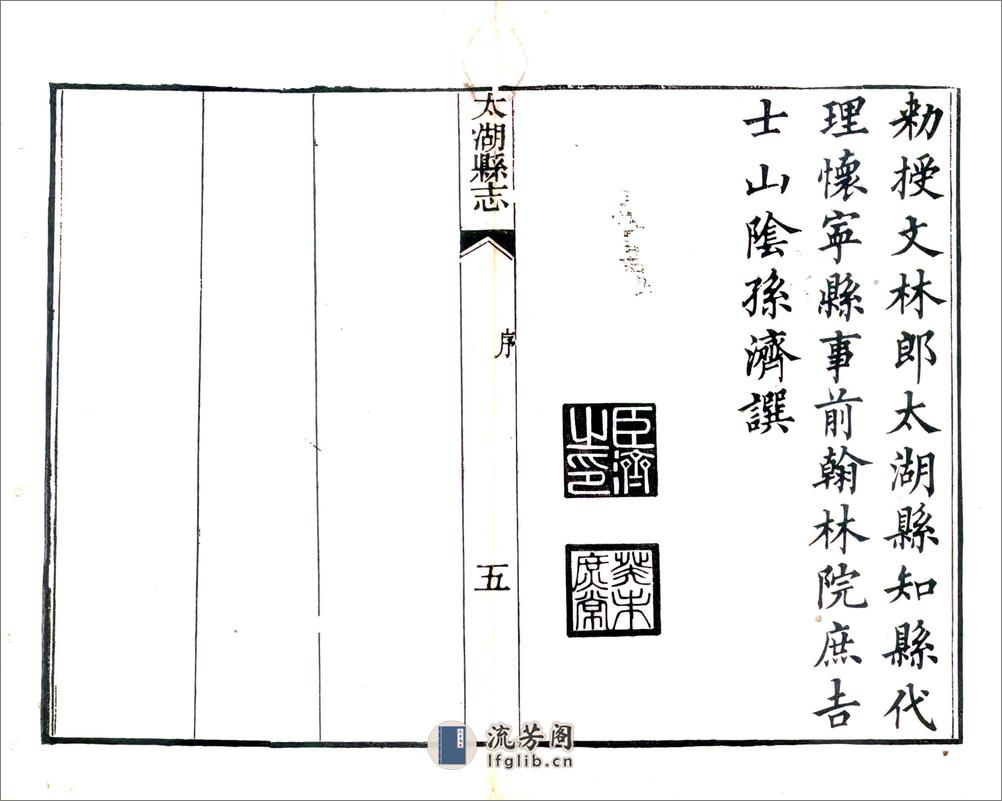 勑授文林郎太湖縣知縣代
理懷寧縣事前翰林院庶吉
士山陰孫濟譔
臣濟之印
癸未庶常
太湖縣志
序
五
流芳阁
lfglib.cn